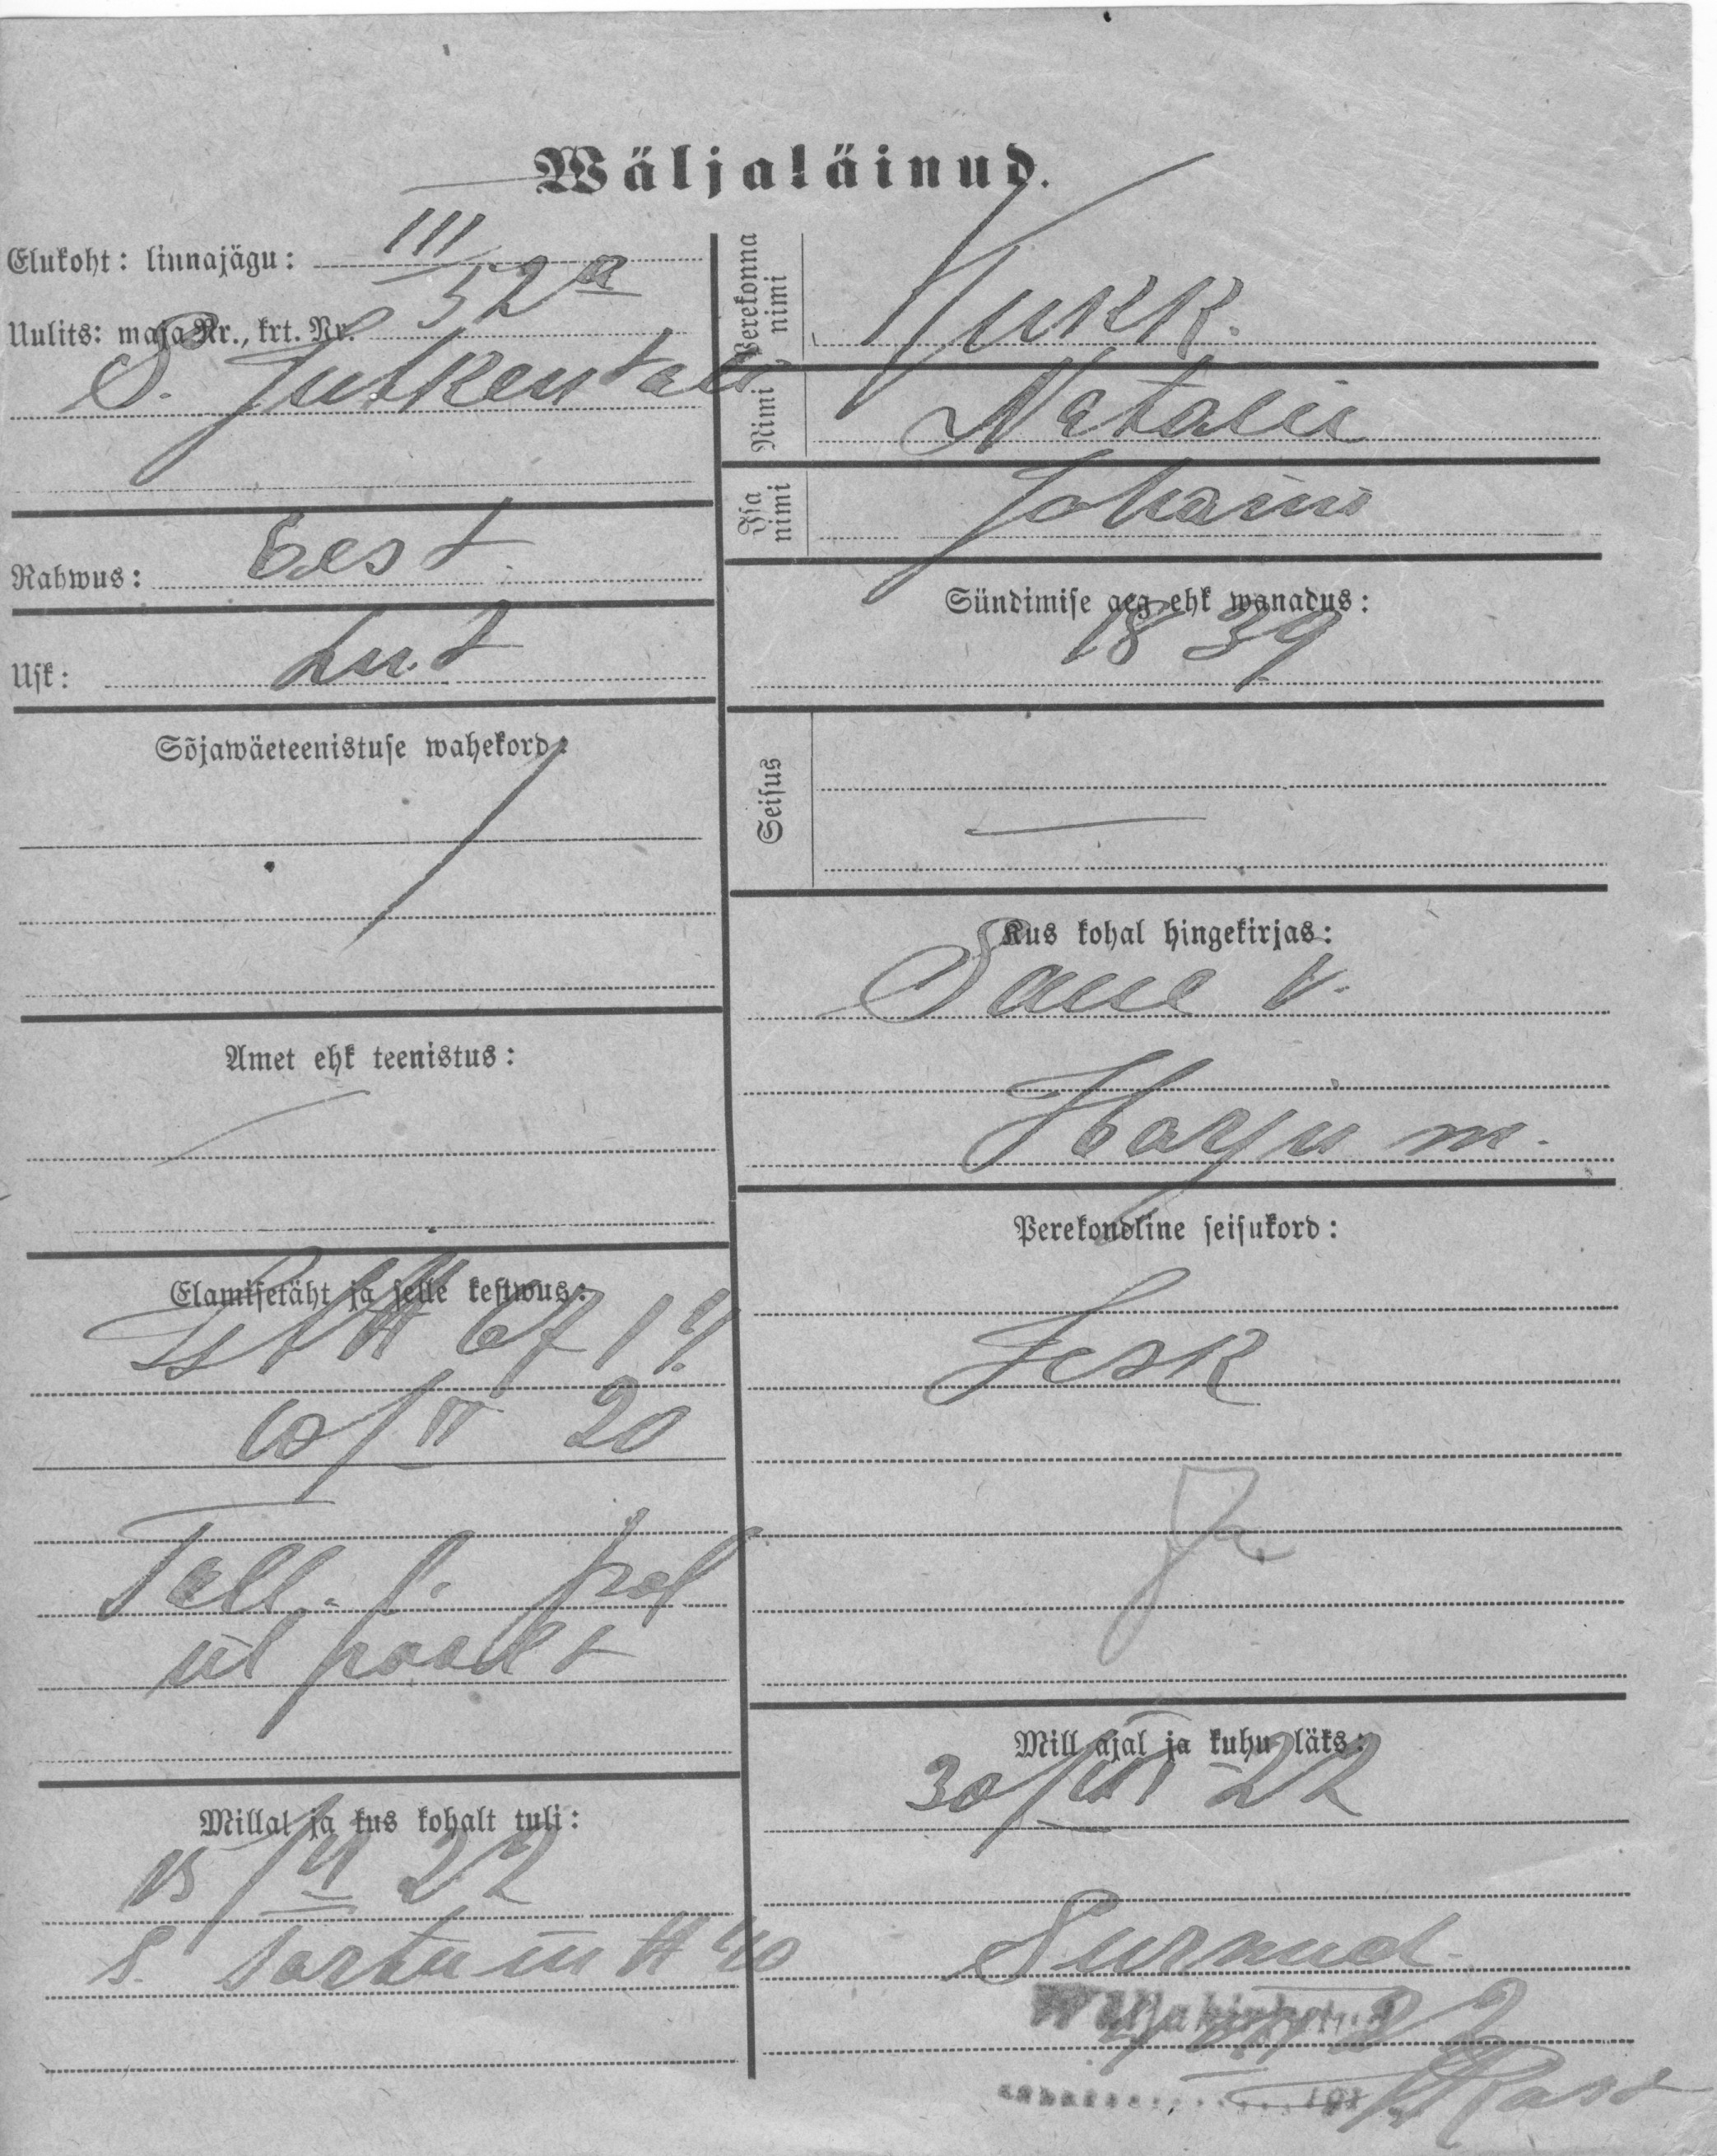 Wäljaläinud.
Elukoht: linnajägu: III
Uulits: maja Nr., krt. Nr. 52a
S. Juhkentali
Rahwus: Eest
Usk: Lut
Sõjawäeteenistuse wahekord:
Amet ehk teenistus:
Elamisetäht ja selle kestwus:
20
Tall. j. pol
Millal ja kus kohalt tuli:
15/VI 22
S. Tartu m # 40
Perekonna nimi Kukk.
Nimi Natalie
Isa nimi Johanni
Sündimise aeg ehk wanadus:
1839
Seisus
Kus kohal hingekirjas:
Saue v.
Harju m.
Perekondline seisukord:
Lesk
Mill ajal ja kuhu läks:
22
Surnud.
Wäljakirjutatud